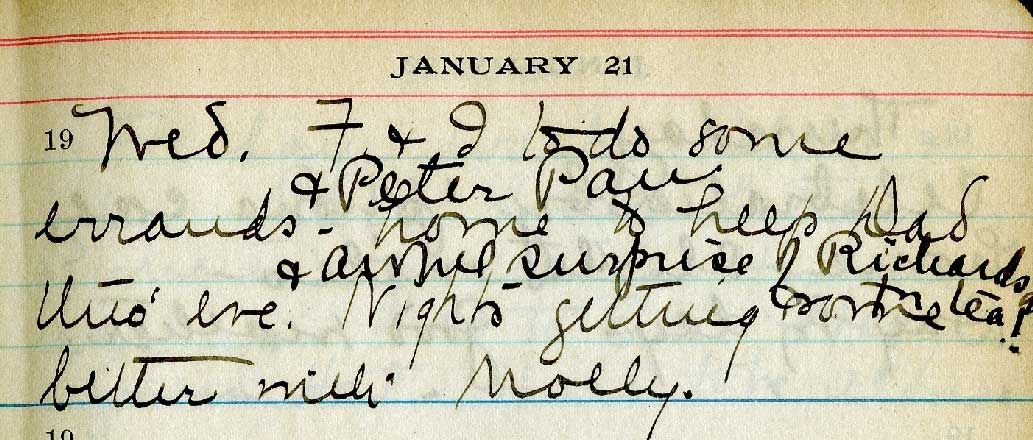 JANUARY 21
19 Wed. F. & I to do some
& Peter Pan
errands - home to help Dad
& awful surprise of Richards
thro' eve. Nights getting some tea!
better with Molly.
19